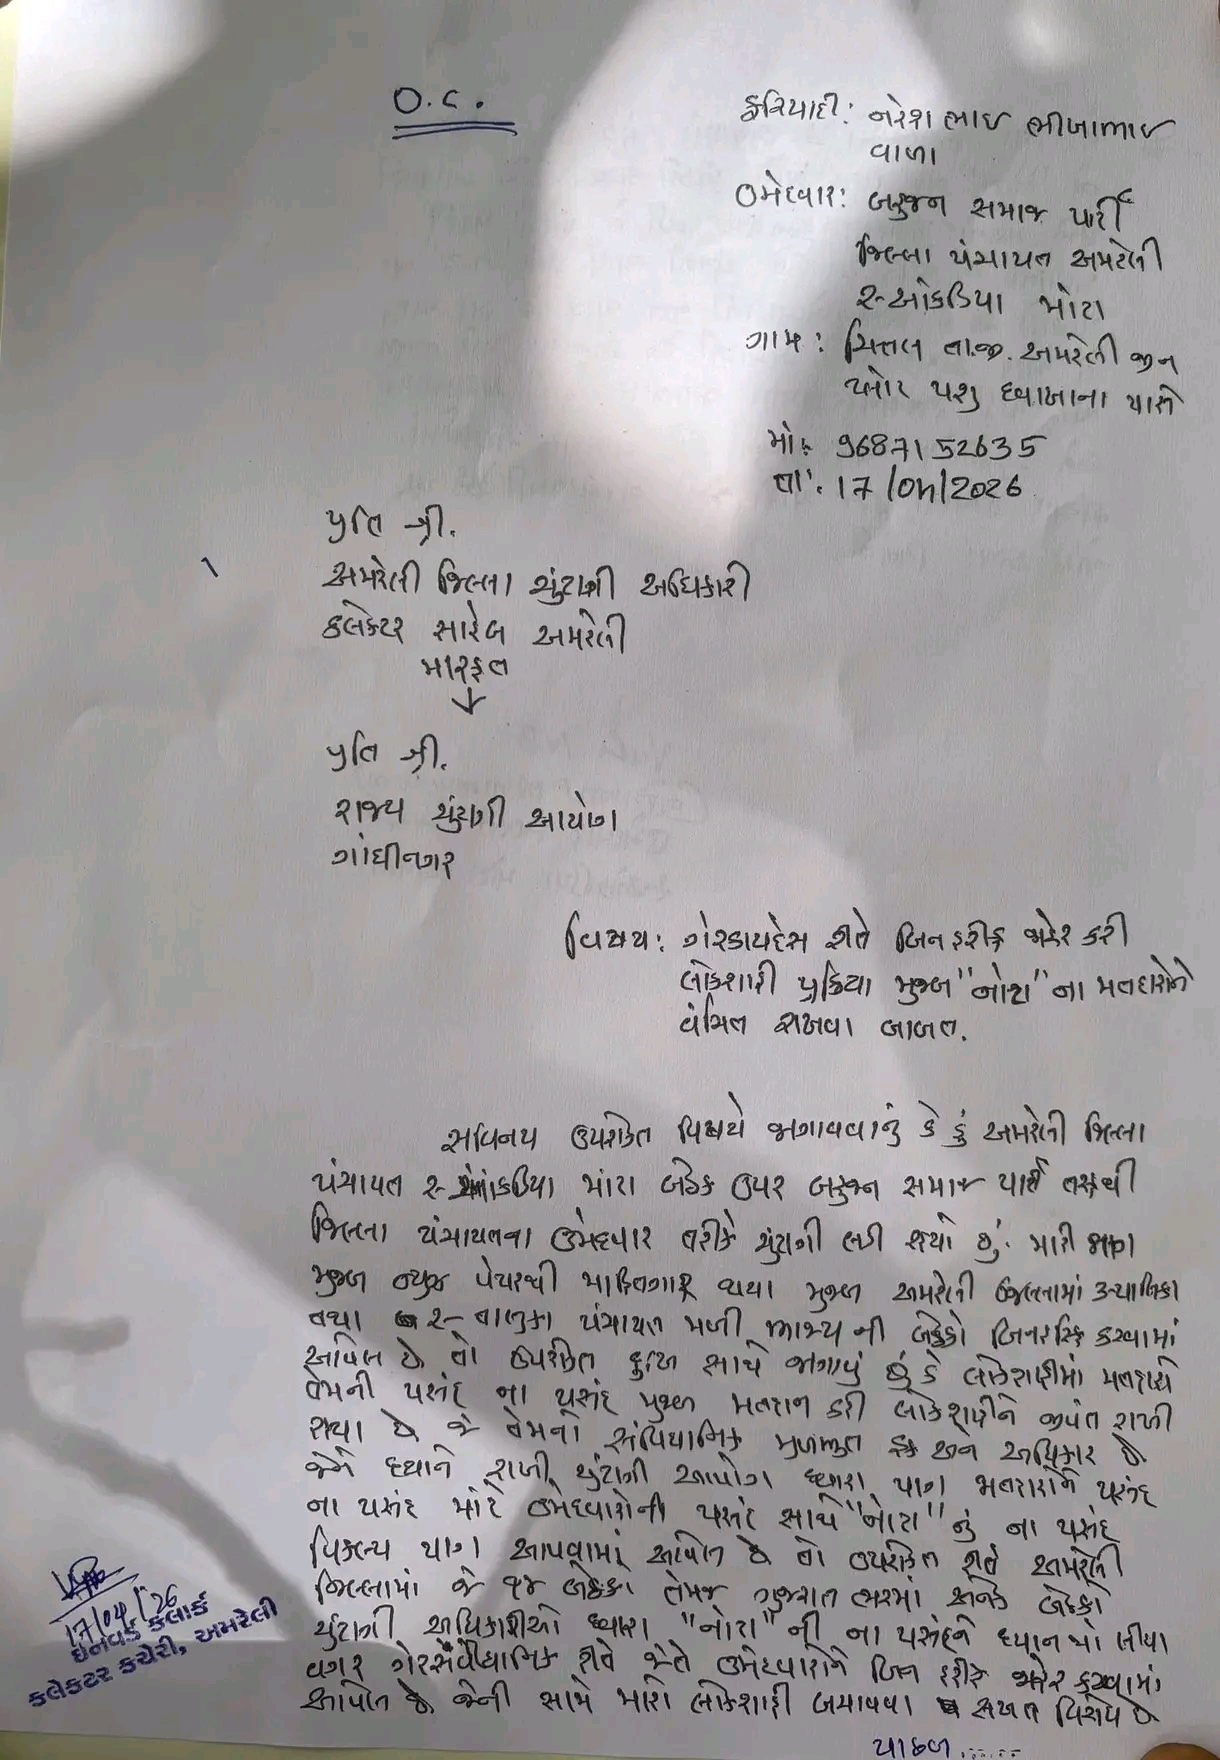 O.C.
ફરિયાદી: નરેશભાઇ ભીખાભાઇ
વાળા
ઉમેદવાર: બહુજન સમાજ પાર્ટી
જિલ્લા પંચાયત અમરેલી
૨-આંકડિયા મોટા
ગામ: ચિત્તલ તા.જી. અમરેલી જીન
પ્લોટ પશુ દવાખાના પાસે
મો: 9687152635
તા. 17/04/2026
પ્રતિ શ્રી.
અમરેલી જિલ્લા ચુંટણી અધિકારી
કલેકટર સાહેબ અમરેલી
મારફત
પ્રતિ શ્રી.
રાજ્ય ચુંટણી આયોગ
ગાંધીનગર
વિષય: ગેરકાયદેસ રીતે બિનહરીફ જાહેર કરી
લોકશાહી પ્રક્રિયા મુજબ "નોટા" ના મતદારોને
વંચિત રાખવા બાબત.
સવિનય ઉપરોક્ત વિષયે જણાવવાનું કે હું અમરેલી જિલ્લા
પંચાયત ૨- આંકડિયા મોટા બેઠક ઉપર બહુજન સમાજ પાર્ટી તરફથી
જિલ્લા પંચાયતના ઉમેદવાર તરીકે ચુંટણી લડી રહ્યો છું. મારી જાણ
મુજબ ન્યુજ પેપરથી માહિતગાર થયા મુજબ અમરેલી જિલ્લામાં ૩ પાલિકા
તથા ૨- તાલુકા પંચાયત મળી ભાજપ ની બેઠકો બિનહરિફ કરવામાં
આવેલ છે તો ઉપરોક્ત દુઃખ સાથે જણાવું છું કે લોકશાહીમાં મતદારો
તેમની પસંદ ના પસંદ મુજબ મતદાન કરી લોકશાહીને જીવંત રાખી
રહ્યા છે જે તેમનો સંવિધાનિક મુળભુત હક અને અધિકાર છે
જેને ધ્યાને રાખી ચુંટણી આયોગ ધ્વારા પણ મતદારોને પસંદ
ના પસંદ માટે ઉમેદવારોની પસંદ સાથે "નોટા" નું ના પસંદ
વિકલ્પ પણ આપવામાં આવેલ છે તો ઉપરોક્ત રીતે અમરેલી
જિલ્લામાં જે ૧૪ બેઠકો તેમજ ગુજરાત ભરમાં અનેક બેઠકો
ચુંટણી અધિકારીઓ ધ્વારા "નોટા" ની ના પસંદને ધ્યાન માં લીધા
વગર ગેરસંવૈધાનિક રીતે જેતે ઉમેદવારોને બિન હરીફ જાહેર કરવામાં
આવેલ છે જેની સામે મારો લોકશાહી બચાવવા સખત વિરોધ છે
પાછળ......
17/04/26
ઇનવર્ડ કલાર્ક
કલેકટર કચેરી, અમરેલી